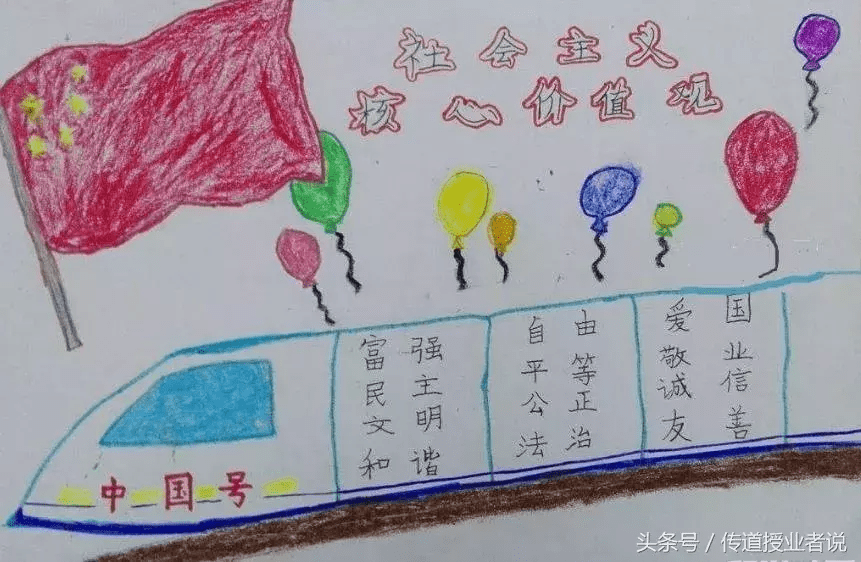 社会主义
核心价值观
富强
民主
文明
和谐
自由
平等
公正
法治
爱国
敬业
诚信
友善
中国号
头条号 / 传道授业者说